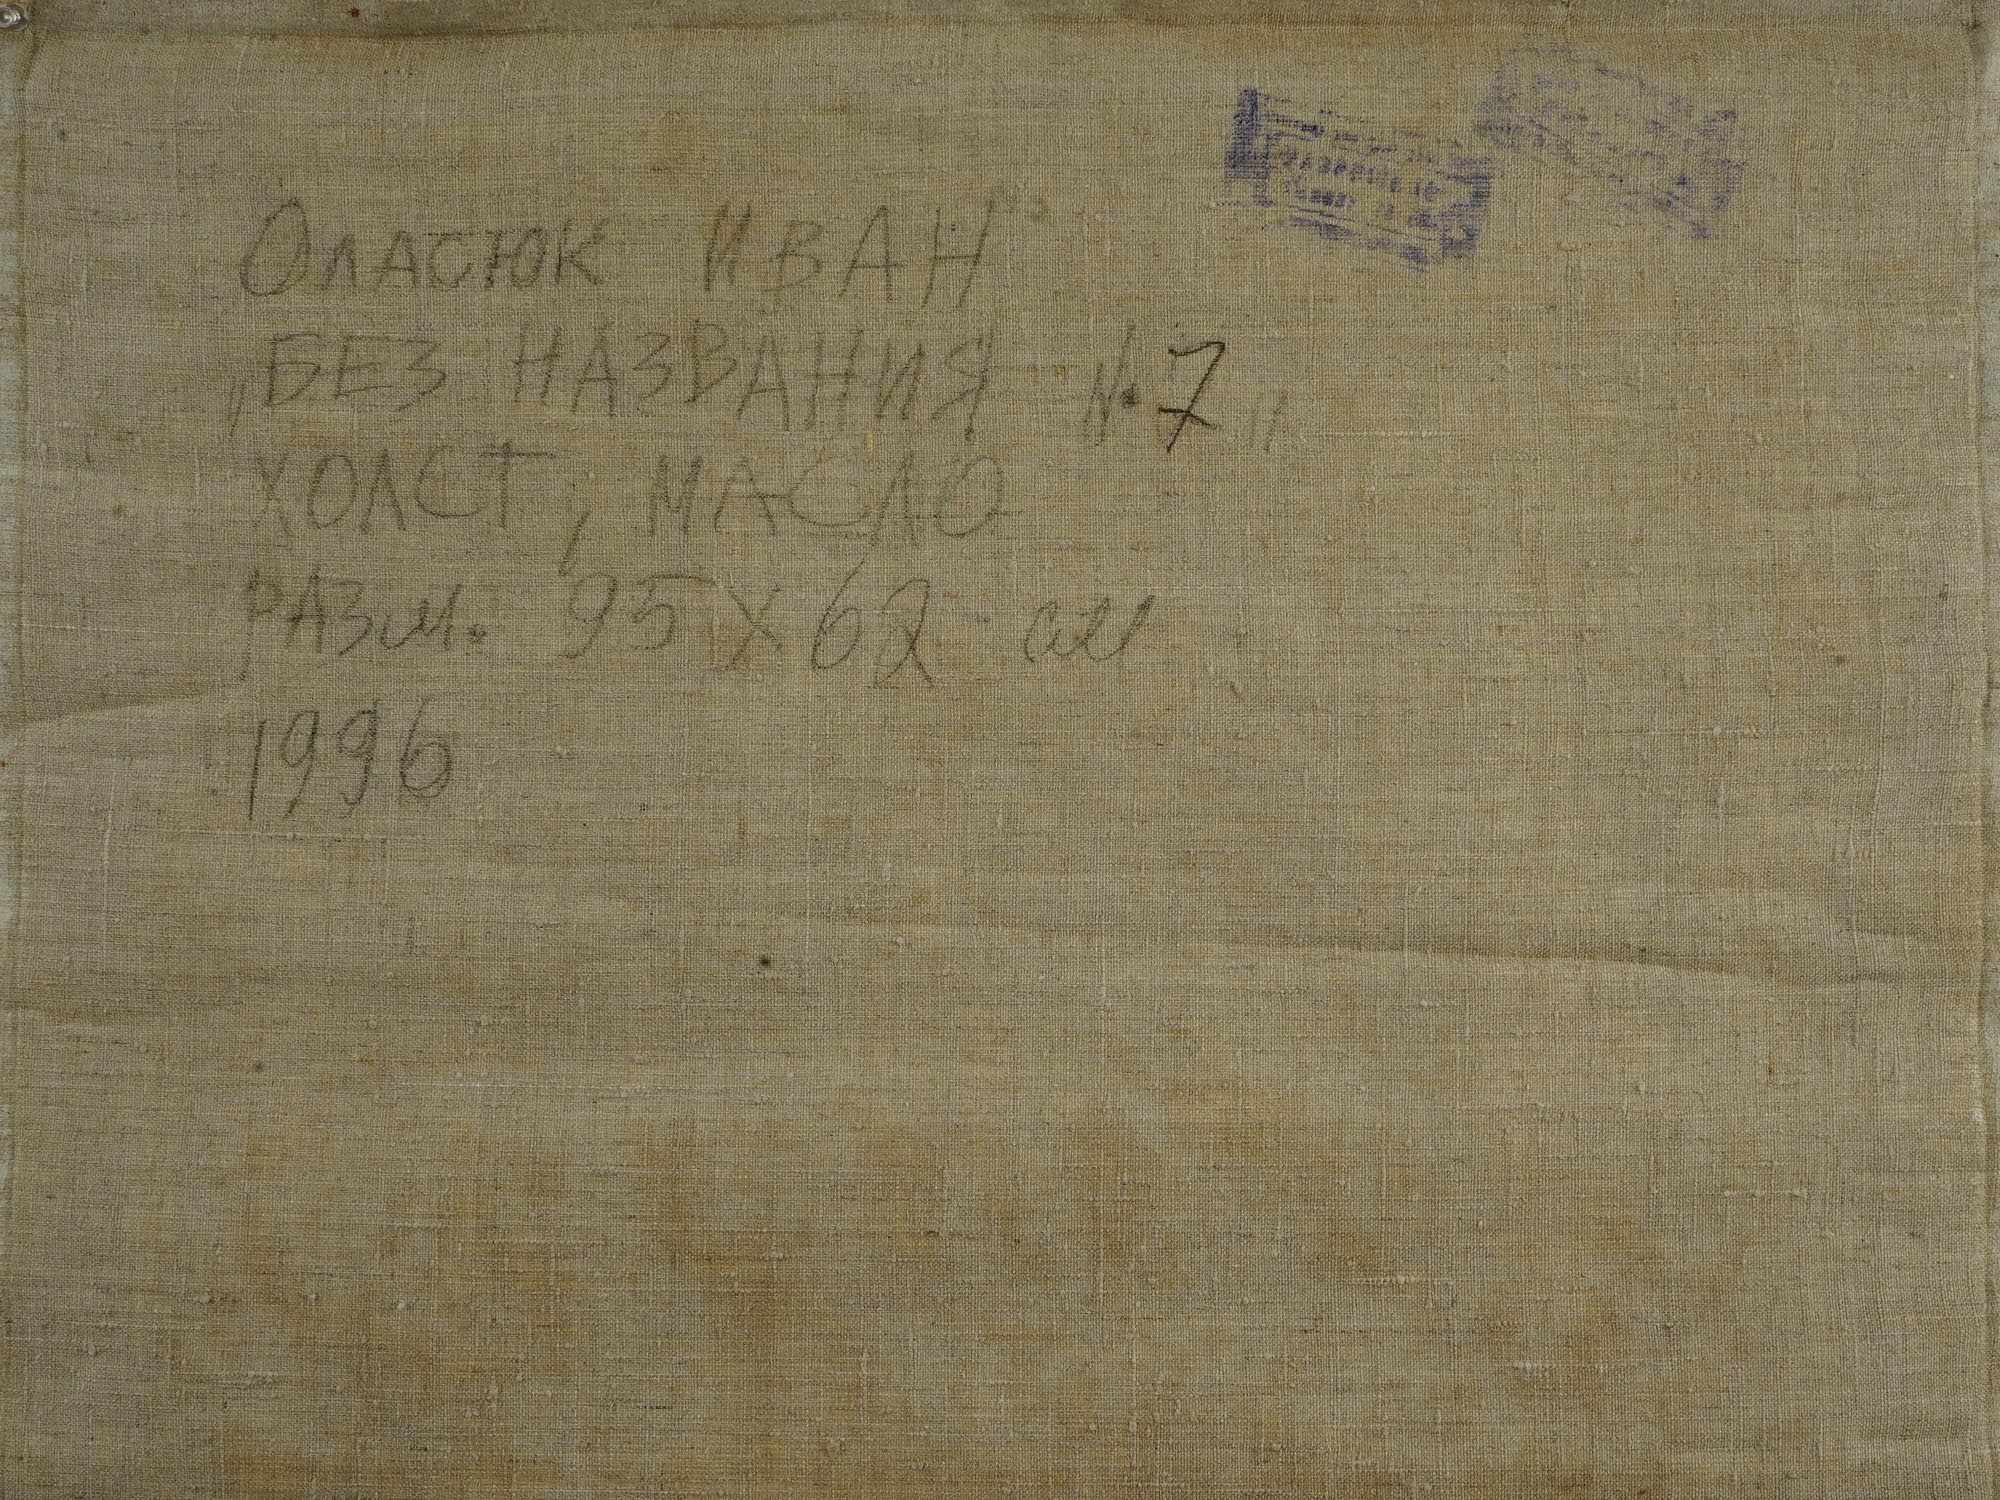 Оласюк Иван
„Без названия №7"
холст, масло
разм. 95 х 62 см
1996